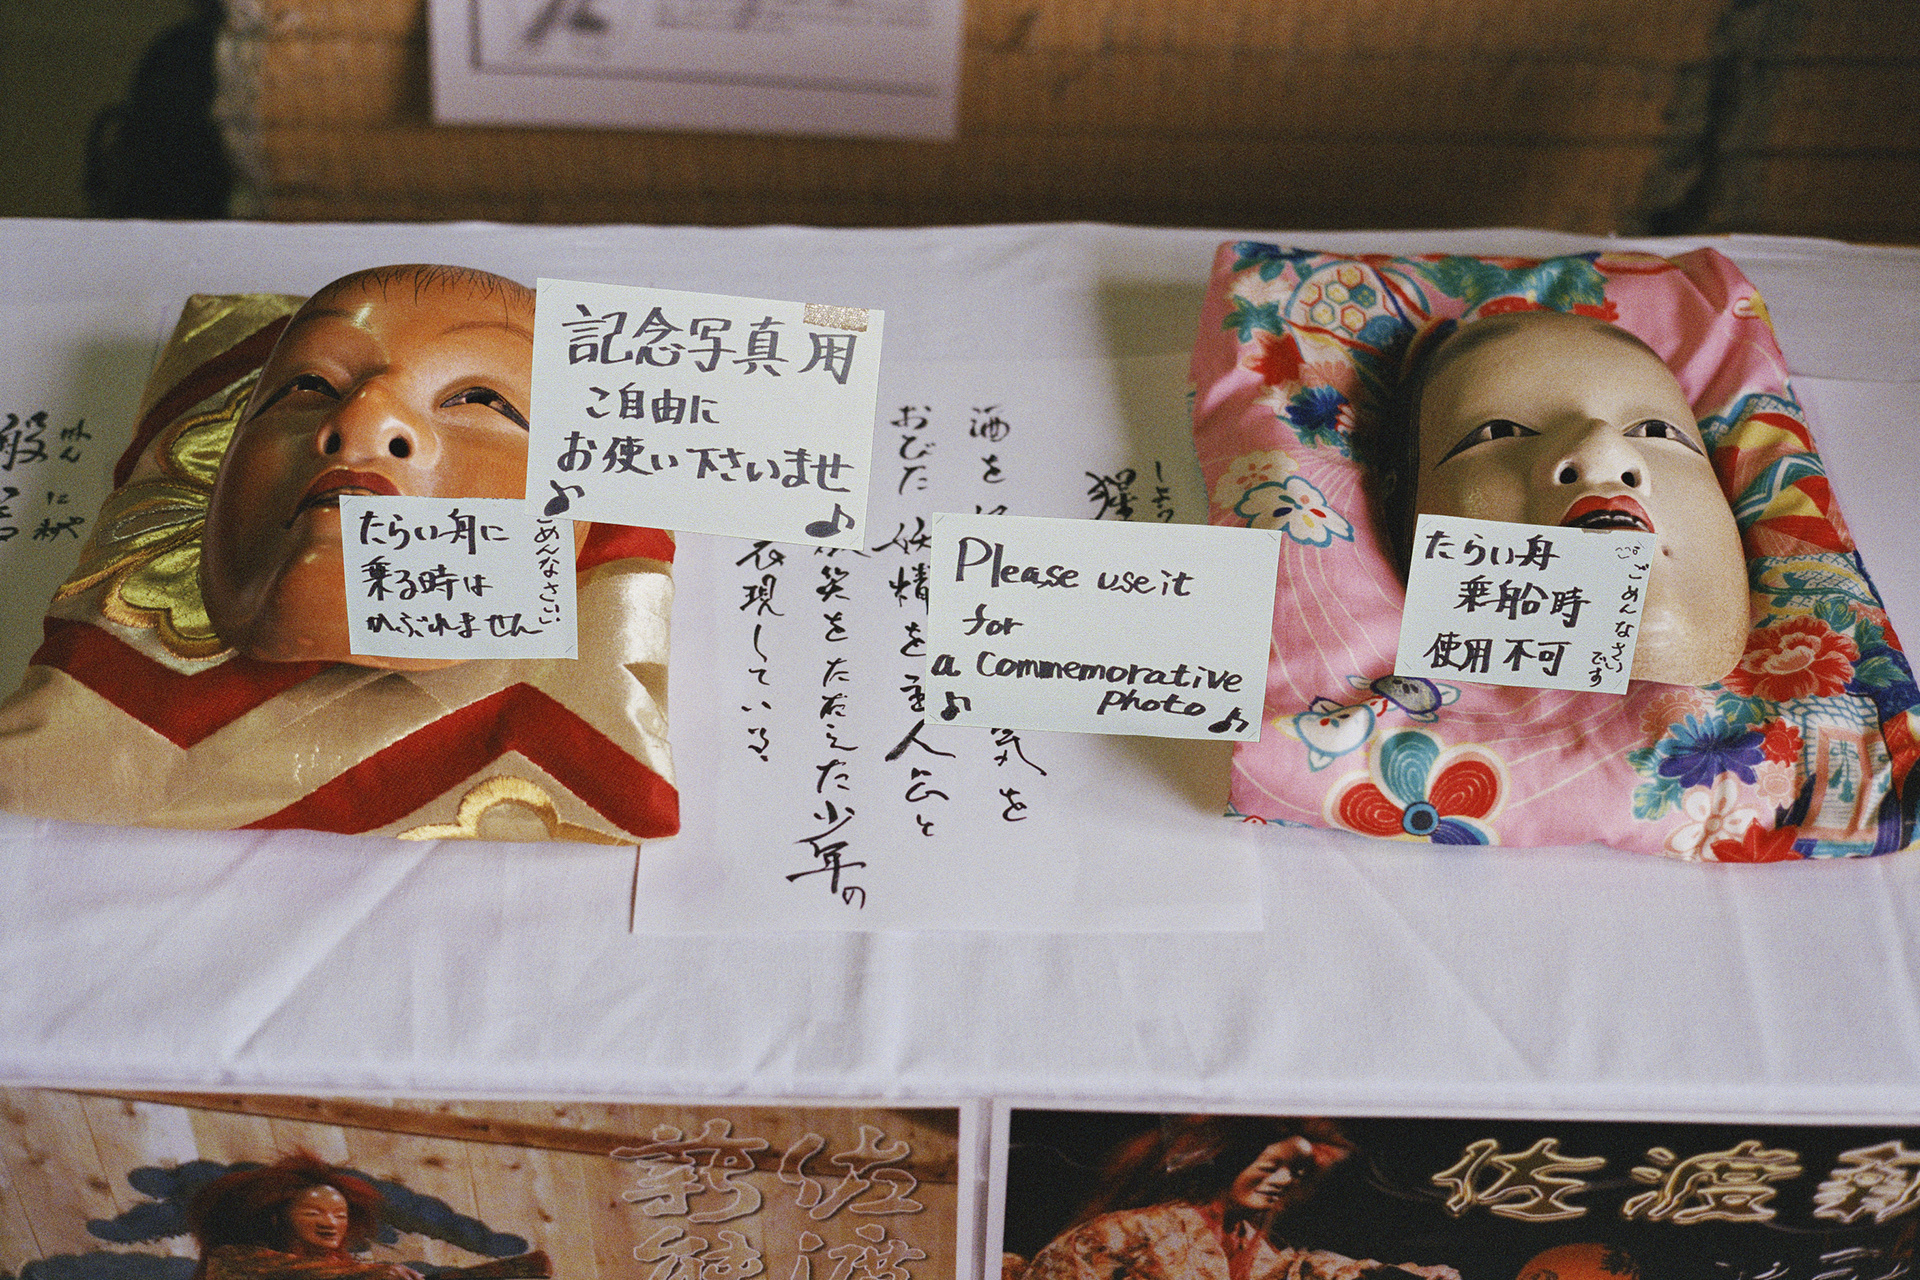 記念写真用
ご自由に
お使い下さいませ
たらい舟に
乗る時は
かぶれません
ごめんなさい
Please use it
for
a commemorative
photo
たらい舟
乗船時
使用不可
ごめんなさい
です
しょう
猩
酒を
気を
おびた妖精を主人公と
笑をたたえた少年の
表現している。
般
佐渡
薪能
佐渡